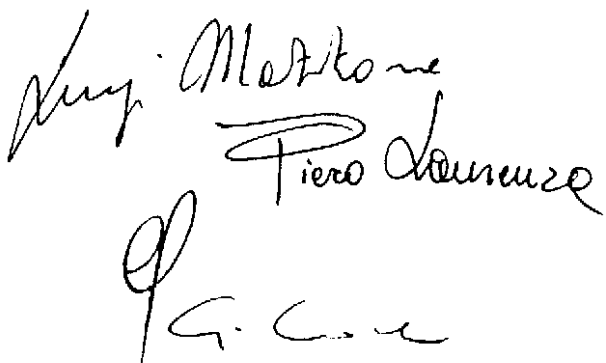 Luigi Matitone
Piero Laurenza
G.